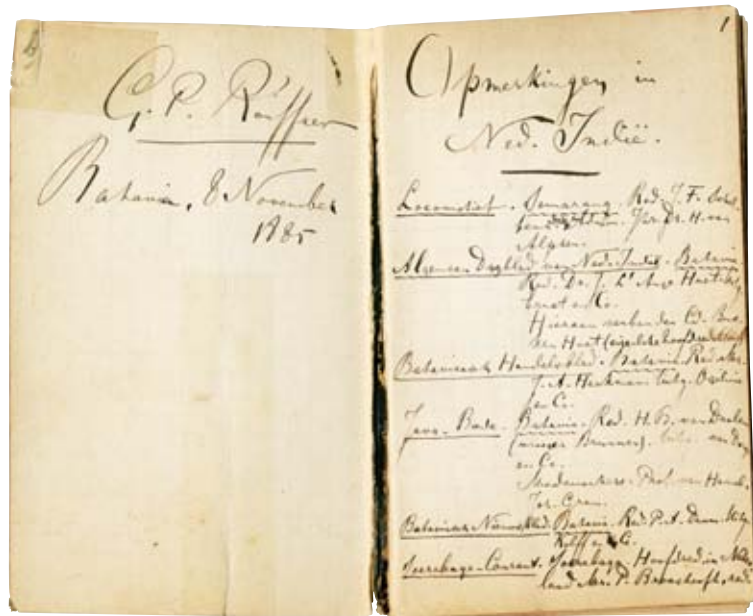 G. P. Rouffaer
Batavia, 8 November
1885
1
Opmerkingen in
Ned. Indië.
Locomotief. Semarang. Red. J. F.
Dr. H. van
Algemeen Dagblad van Ned. Indië. Batavia
Red. Dr. J.
Ernst en Co.
Hieraan verbonden Cd. Bus-
ken Huet (eigenlijke hoofdredakteur)
Bataviaasch Handelsblad. Batavia. Red. Mr.
J. A. Haakman. Uitg.
en Co.
Java-Bode. Batavia. Red. H. B. van Daalen
(vroeger Brunner). van Dorp
en Co.
Medewerkers. Prof. van
Batav. Nieuwsblad. Batavia. Red. P. A. Daum. Uitg.
Kolff en Co.
Soerabaya-Courant. Soerabaya. Hoofdred. in Neder-
land Mr. P. Brooshooft, red.